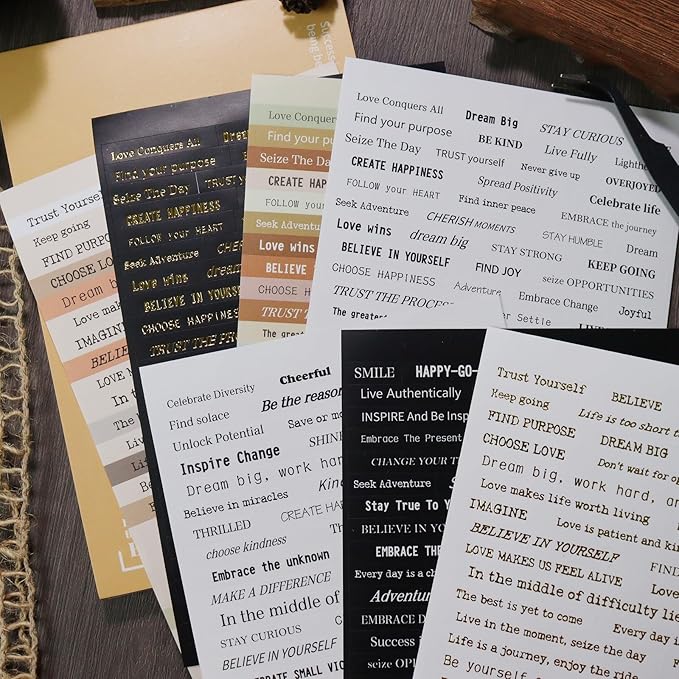 Success
being be
Trust Yourself
Keep going
FIND PURPO
CHOOSE LO
Dream big
Love mak
IMAGINE
BELIE
LOVE M
In th
The
Live
Love Conquers All Dream
Find your purpose
Seize The Day TRUST
CREATE HAPPINESS
FOLLOW YOUR HEART
Seek Adventure CHER
Love wins dream
BELIEVE IN YOURSE
CHOOSE HAPPINES
TRUST THE PRO
The greatest
Love Conquers
Find your purpose
Seize The Day
CREATE HAPPINE
FOLLOW your HEAR
Seek Adventure
Love wins
BELIEVE
CHOOSE HA
TRUST T
The great
Love Conquers All Dream Big STAY CURIOUS
Find your purpose BE KIND Live Fully Lighthe
Seize The Day TRUST yourself Never give up OVERJOYED
CREATE HAPPINESS Spread Positivity Celebrate life
FOLLOW your HEART Find inner peace EMBRACE the journey
Seek Adventure CHERISH MOMENTS STAY HUMBLE Dream
Love wins dream big STAY STRONG KEEP GOING
BELIEVE IN YOURSELF FIND JOY seize OPPORTUNITIES
CHOOSE HAPPINESS Adventure Embrace Change Joyful
TRUST THE PROCES
The greatest er Settle LIVE
Celebrate Diversity Cheerful
Find solace Be the reaso
Unlock Potential Save or mo
Inspire Change SHINE
Dream big, work hard,
Believe in miracles Kin
THRILLED CREATE HAP
choose kindness The
Embrace the unknown
MAKE A DIFFERENCE
In the middle of
STAY CURIOUS
BELIEVE IN YOURSELF
EBRATE SMALL VIC
SMILE HAPPY-GO-
Live Authentically
INSPIRE And Be Insp
Embrace The Present
CHANGE YOUR T
Seek Adventure
Stay True To Y
BELIEVE IN YO
EMBRACE THE
Every day is a ch
Adventur
EMBRACE D
Success i
seize OPI
Trust Yourself BELIEVE
Keep going Life is too short t
FIND PURPOSE DREAM BIG
CHOOSE LOVE Don't wait for op
Dream big, work hard, an
Love makes life worth living
IMAGINE Love is patient and ki
BELIEVE IN YOURSELF FIND
LOVE MAKES US FEEL ALIVE Love
In the middle of difficulty lie
The best is yet to come Every day i
Live in the moment, seize the day
Life is a journey, enjoy the ride
Be yourself